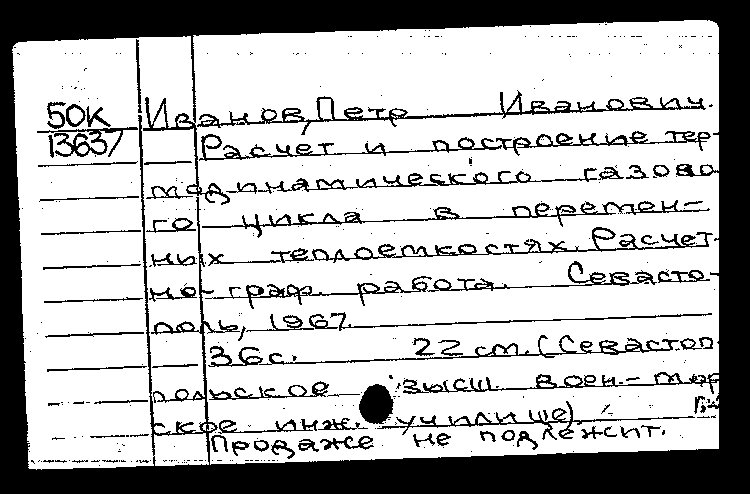 50К Иванов, Петр Иванович.
13637 Расчет и построение тер-
модинамического газово
го цикла в перемен-
ных теплоемкостях. Расчет-
но-граф. работа. Севасто-
поль, 1967.
36с. 22 см. (Севастоп
польское высш. воен.-мор
ское инж. училище).
Продаже не подлежит.